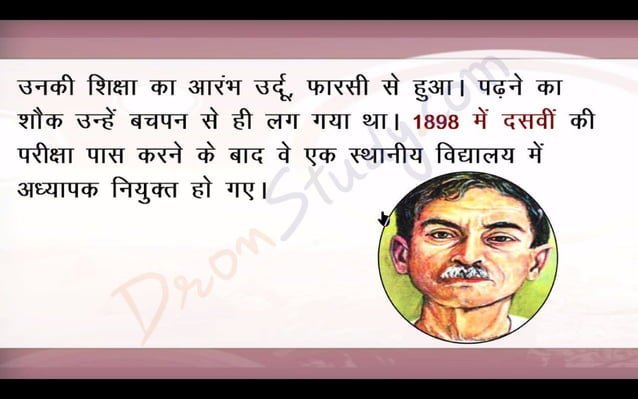 उनकी शिक्षा का आरंभ उर्दू, फारसी से हुआ। पढ़ने का
शौक उन्हें बचपन से ही लग गया था। 1898 में दसवीं की
परीक्षा पास करने के बाद वे एक स्थानीय विद्यालय में
अध्यापक नियुक्त हो गए।
DronStudy.com